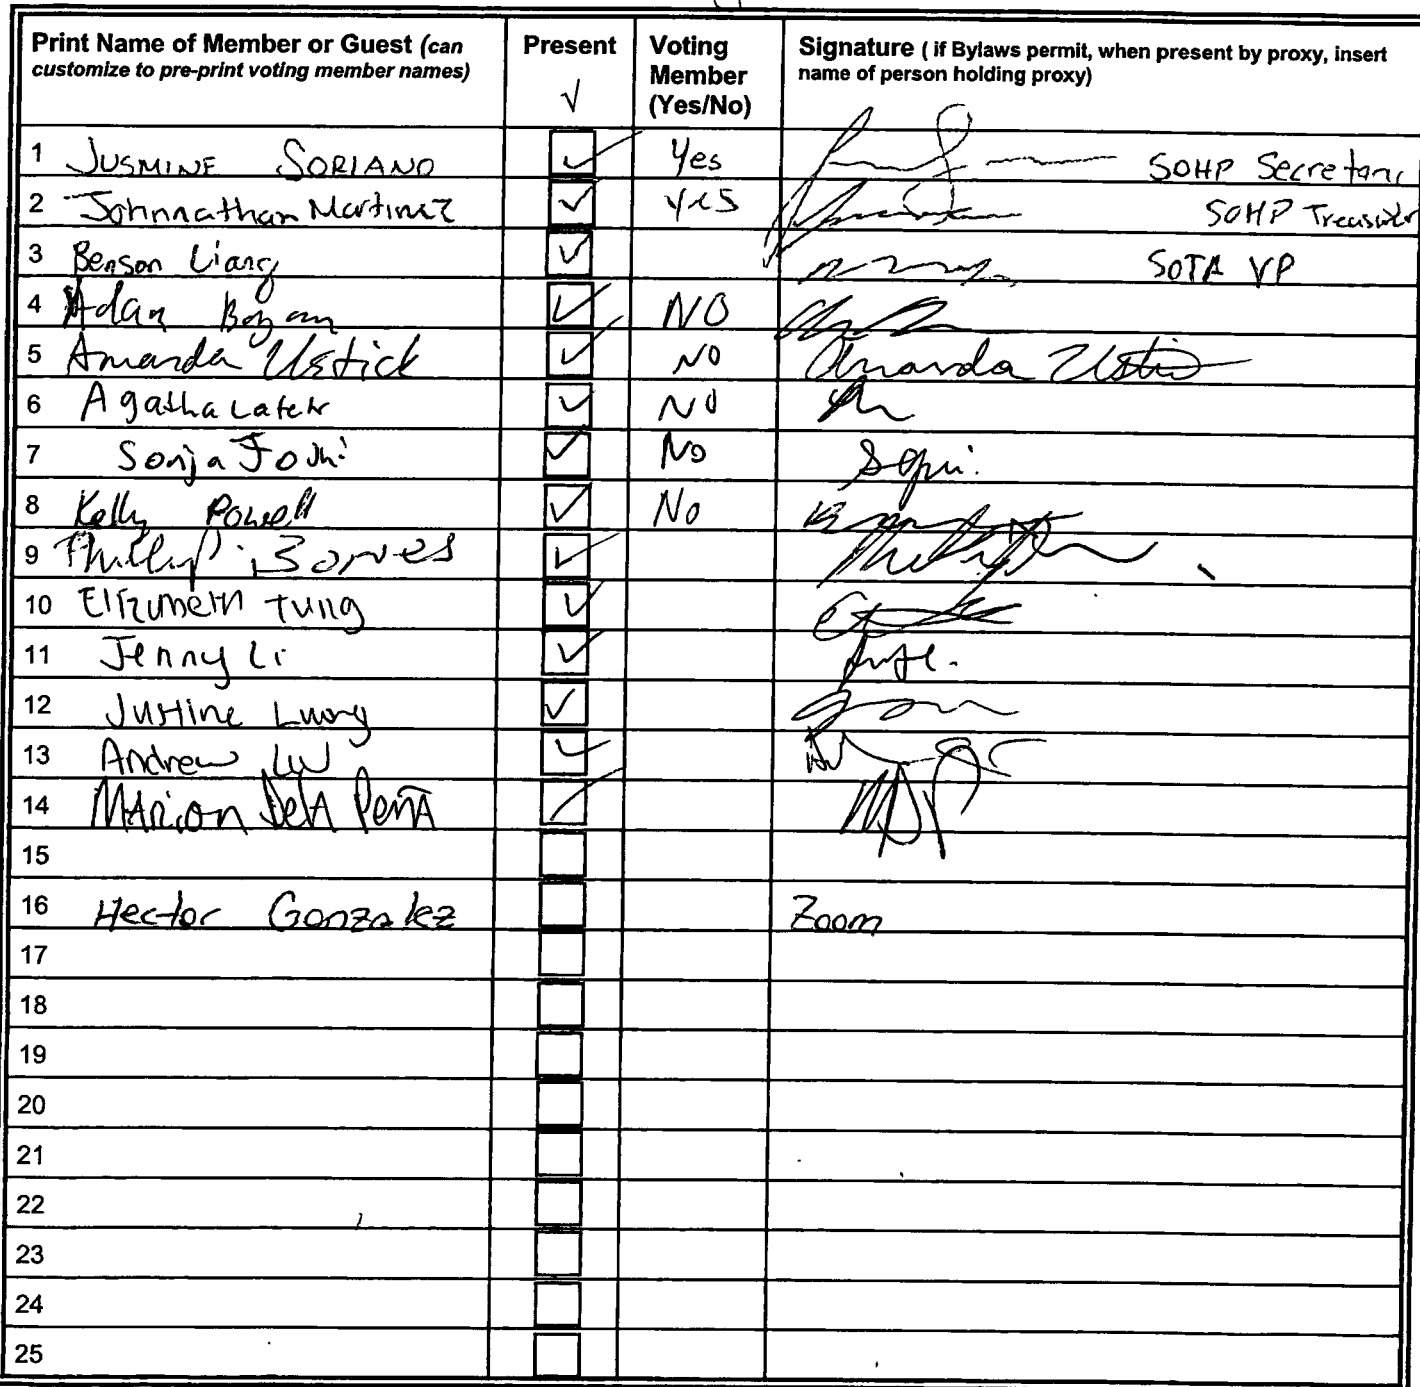 Print Name of Member or Guest (can customize to pre-print voting member names)
Present
√
Voting Member (Yes/No)
Signature ( if Bylaws permit, when present by proxy, insert name of person holding proxy)
1 JUSMINE SORIANO Yes SOHP Secretary
2 Johnnathan Martinez Yes SOHP Treasurer
3 Benson Liang SOTA VP
4 Adan NO
5 Amanda Ustick NO Amanda Ustick
6 Agatha NO
7 Sonja Joshi No
8 Kelly Powell No
9 Phillip
10 Elizabeth Tung
11 Jenny Li
12 Justine Luong
13 Andrew
14 MARION Dela Peña
15
16 Hector Gonzalez Zoom
17
18
19
20
21
22
23
24
25